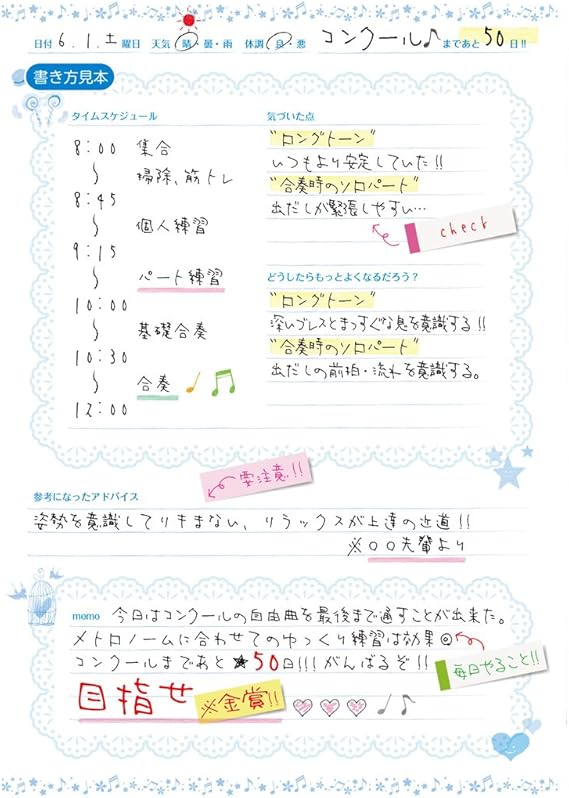 日付 6.1.土 曜日 天気 晴・曇・雨 体調 良・悪 コンクール♪ まであと 50 日!!
書き方見本
タイムスケジュール
8:00 集合
〜 掃除、筋トレ
8:45
〜 個人練習
9:15
〜 パート練習
10:00
〜 基礎合奏
10:30
〜 合奏
12:00
気づいた点
"ロングトーン"
いつもより安定していた!!
"合奏時のソロパート"
出だしが緊張しやすい…
check
どうしたらもっとよくなるだろう?
"ロングトーン"
深いブレスとまっすぐな息を意識する!!
"合奏時のソロパート"
出だしの前拍・流れを意識する。
要注意!!
参考になったアドバイス
姿勢を意識してりきまない、リラックスが上達の近道!!
※〇〇先輩より
memo 今日はコンクールの自由曲を最後まで通すことが出来た。
メトロノームに合わせてのゆっくり練習は効果◎
コンクールまであと★50日!!! がんばるぞ!!
毎日やること!!
目指せ ※金賞!!